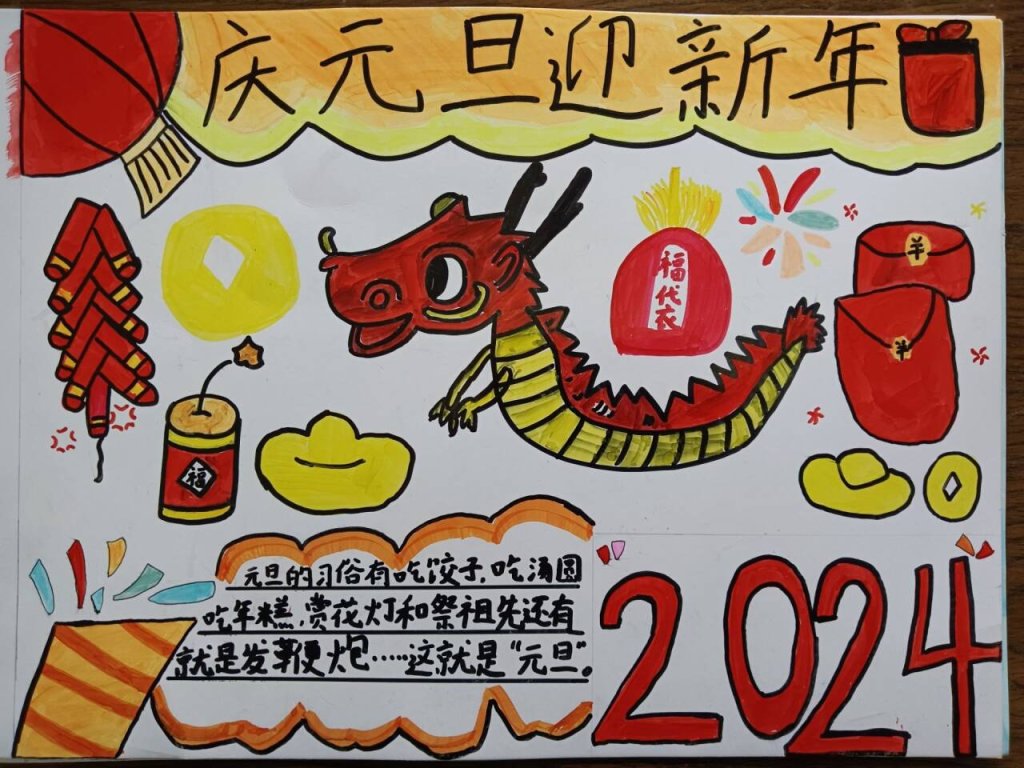 庆元旦迎新年
福代衣
羊
羊
福
元旦的习俗有吃饺子，吃汤圆
吃年糕，赏花灯和祭祖先还有
就是发鞭炮……这就是“元旦”。
2024